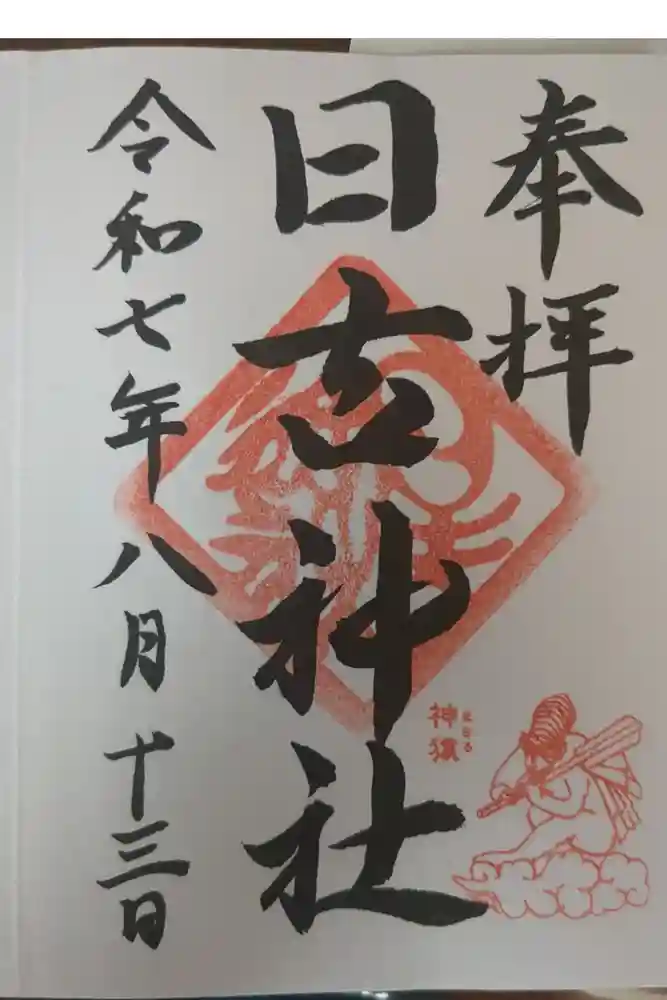 奉拝
日吉神社
神猿
まさる
令和七年八月十三日